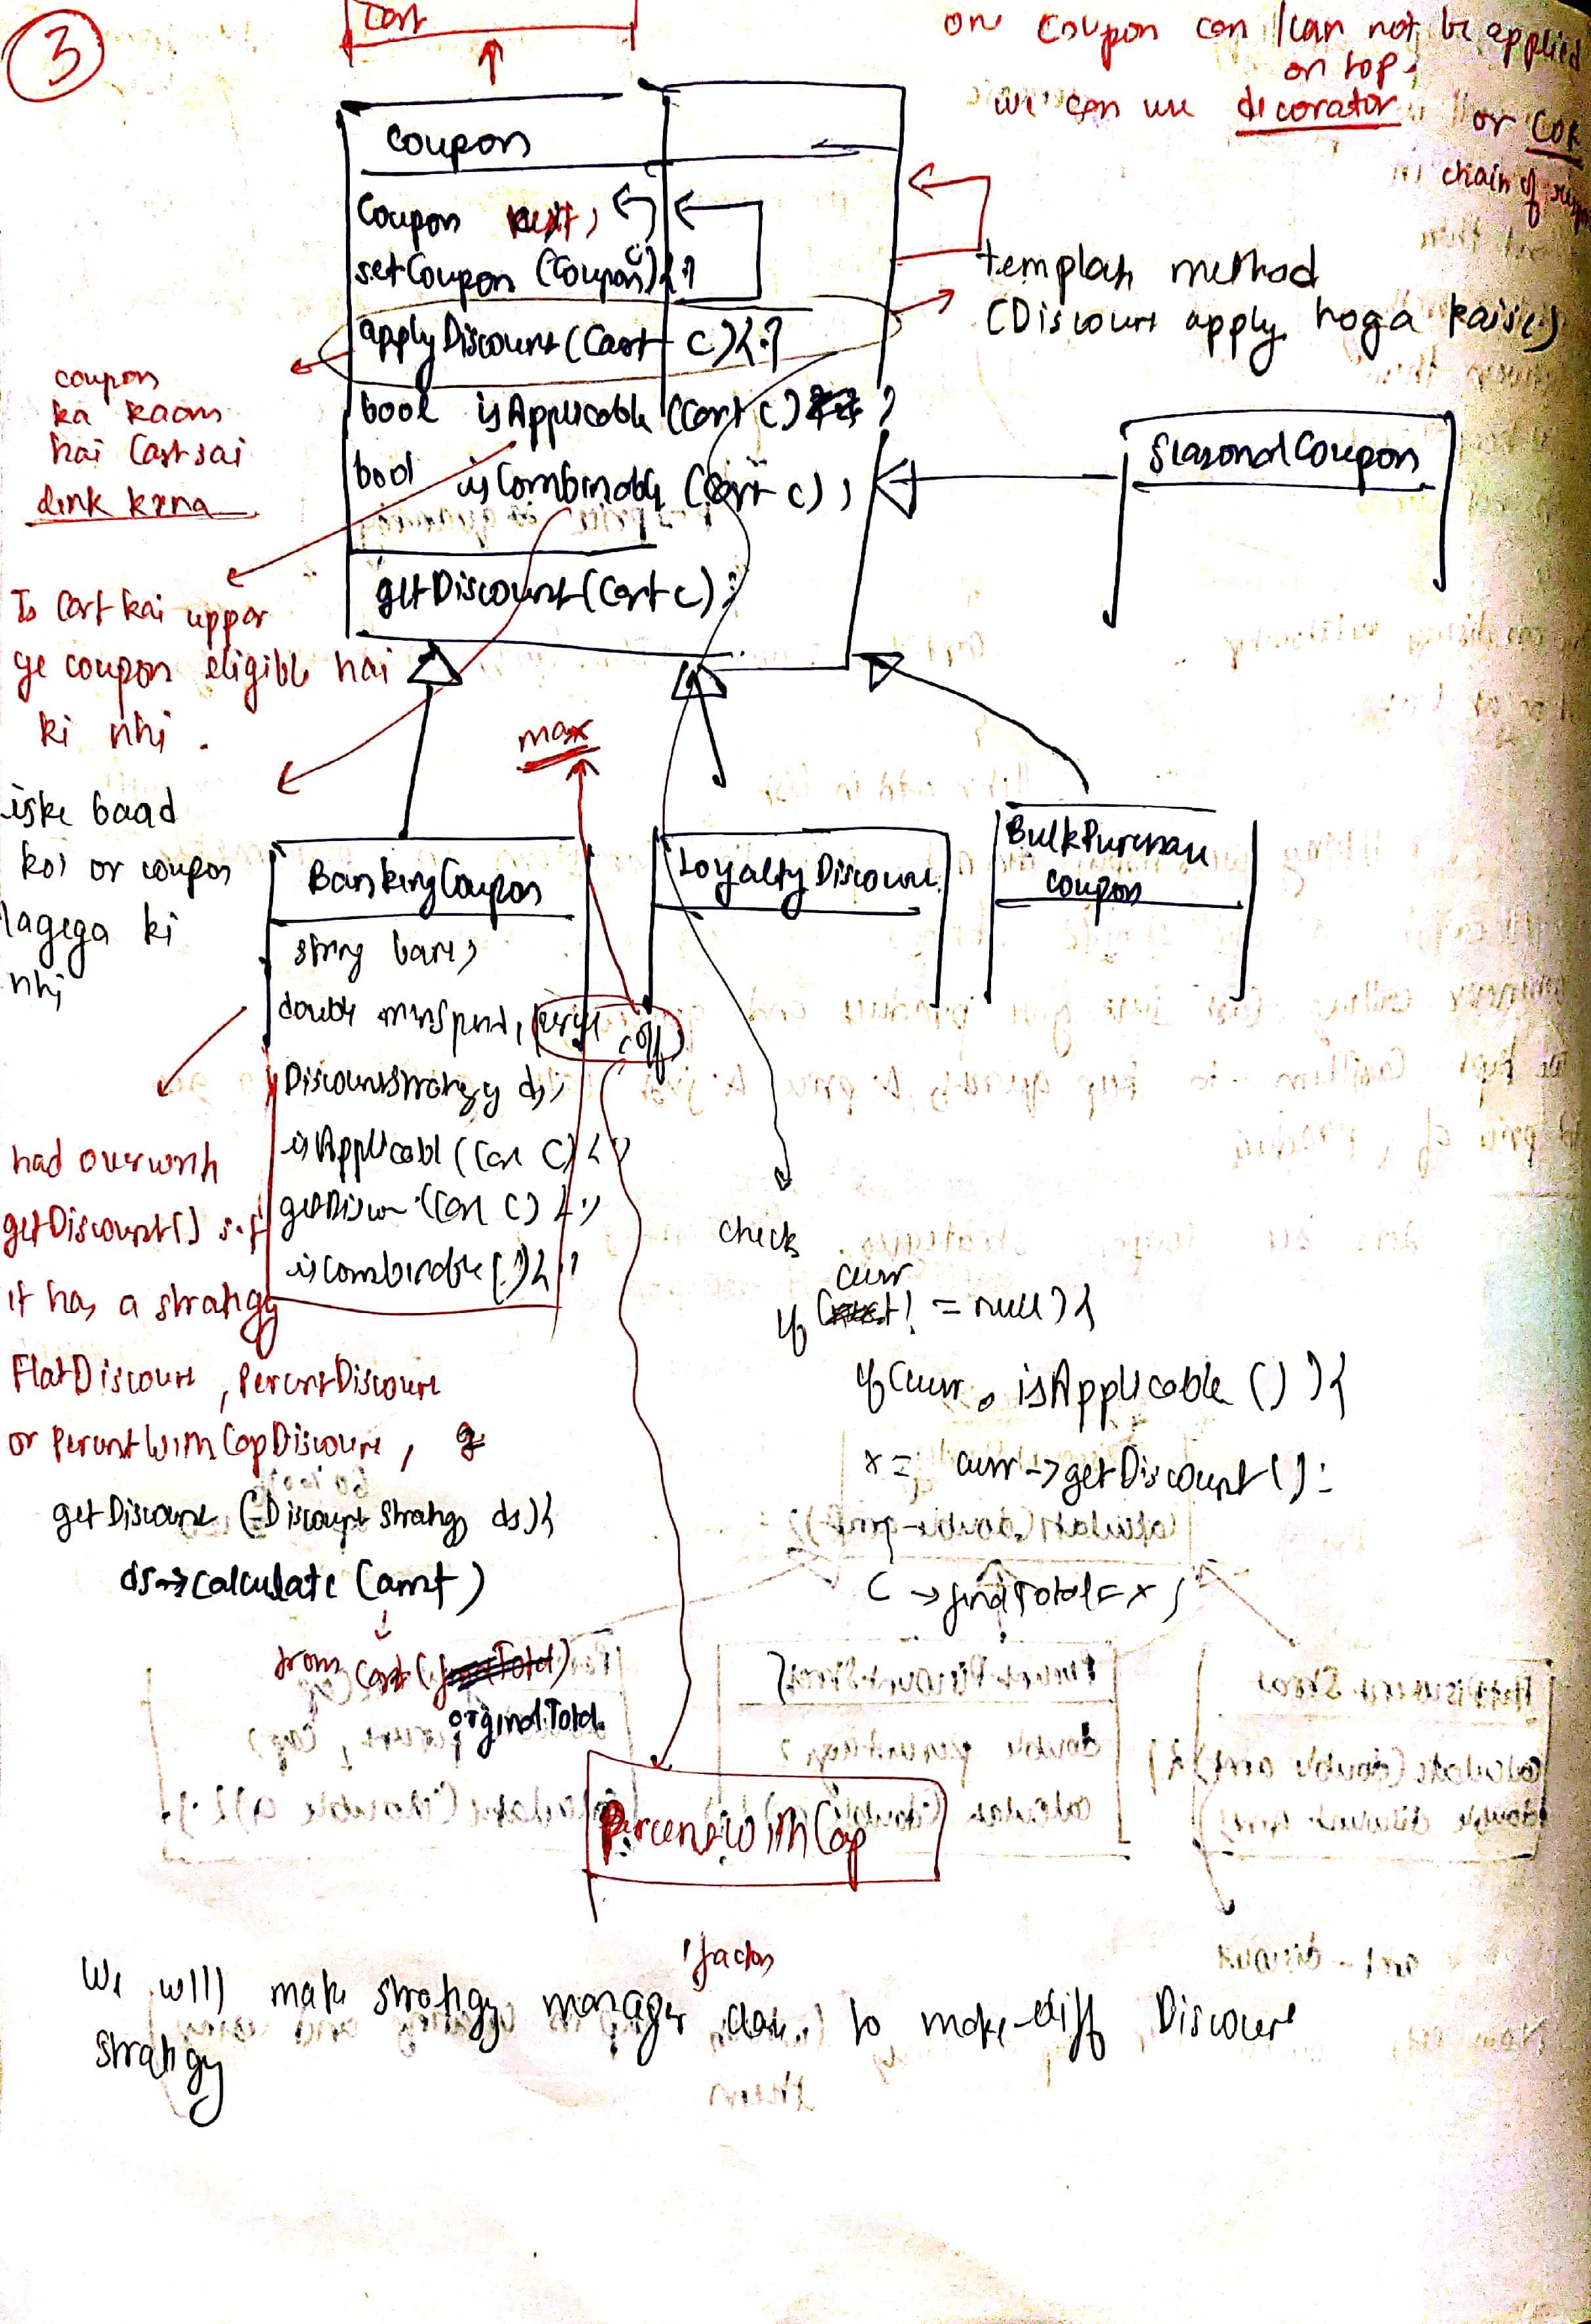 3
Cart
on coupon can / can not be applied
on top,
we can use decorator
or COR
chain of
Coupon
Coupon next;
setCoupon (Coupon c){}
applyDiscount (Cart c){.}
bool isApplicable (Cart c)
bool isCombinable (Cart c);
getDiscount (Cart c);
template method
(Discount apply hoga kaise)
coupon
ka kaam
hai Cart sai
link krna
SeasonalCoupon
To Cart kai uppar
ye coupon eligible hai
ki nhi.
max
iske baad
koi or coupon
lagega ki
nhi
BankingCoupon
string bank;
double minSpend, percent
off
DiscountStrategy ds;
isApplicabl (Car C) { }
getDiscn (Car C) { }
isCombinable () { }
Loyalty Discount
BulkPurchase
coupon
had overwrih
getDiscount()
it has a strategy
FlatDiscount, PercentDiscount
or PercentWithCapDiscount,
getDiscount (Discount Strategy ds){
ds->calculate (amt)
from Cart
orginalTotal
check
curr
if ( != null) {
if (curr. isApplicable () ) {
x = curr->getDiscount();
C ->finalTotal = x;
PercentWithCap
factory
We will make strategy manager class to make diff Discount
strategy